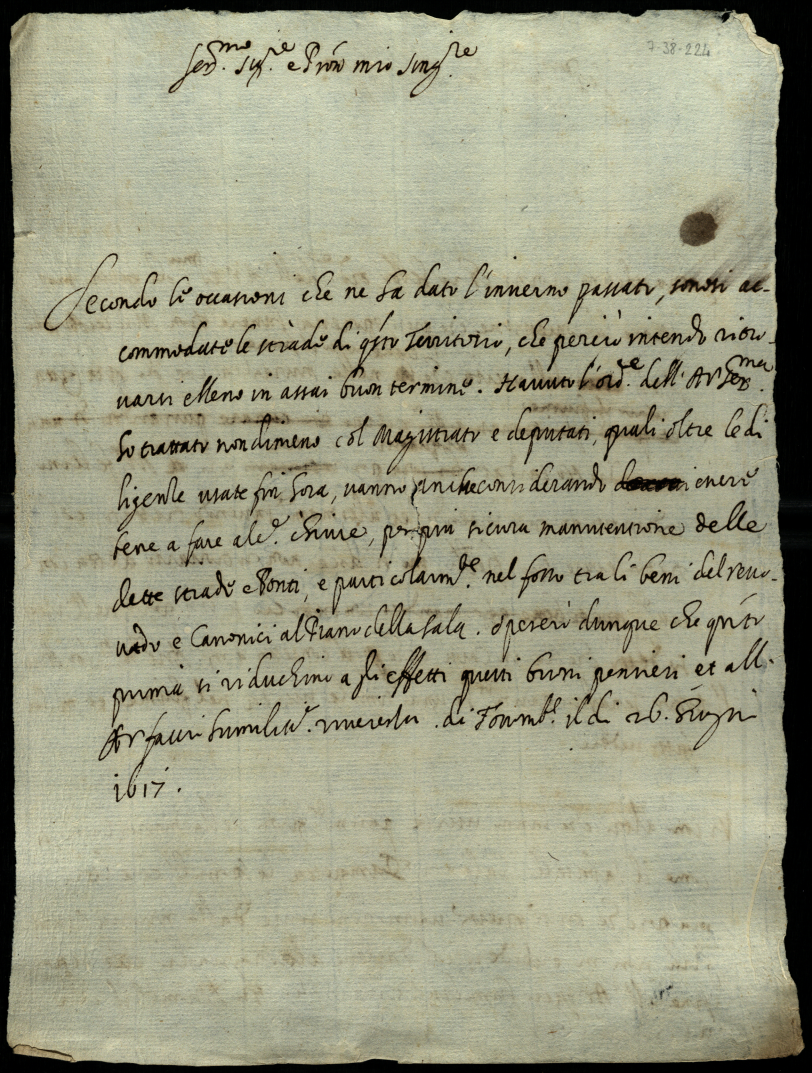 7-38-224
Ser.mo Sig.re e Pron mio Sing.re
Secondo le occasioni che ne ha dato l'inverno passato, sonosi ac-
commodate le strade di q.sto Territorio, che perciò intendo ritro-
varsi elleno in assai buon termine. Havuto l'ord.e dell'A.V. Ser.ma
ho trattato nondimeno col Magistrato e deputati, quali oltre le di
ligenze usate fin hora, vanno anche considerando
bene a fare alc.e chiuse, per più sicura manutensione delle
dette strade e Ponti, e particolarm.te nel fosso tra li beni del
e Canonici al Piano della sala. Spererò dunque che q.sto
prima si riduchino a gli effetti questi buoni pensieri et all'
A.V. faccio humiliss.e riverenza. di il di 26. Giugno
1617.